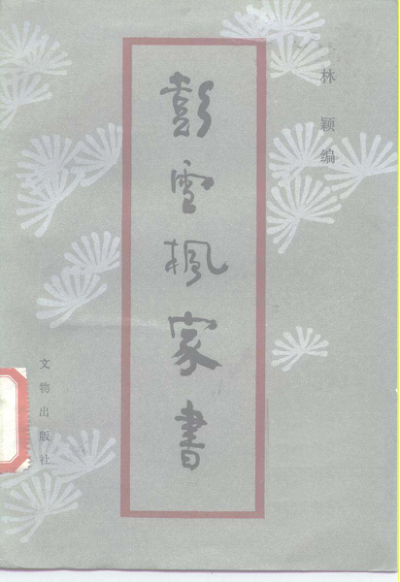 林颖编
彭雪枫家書
文物出版社